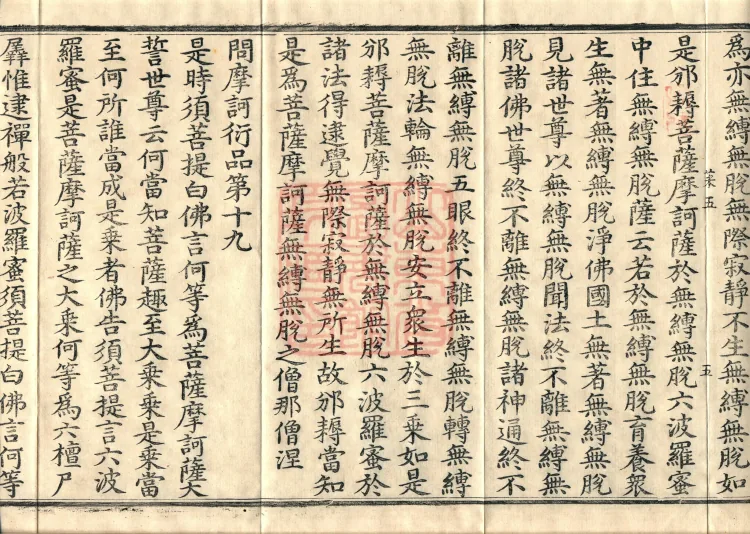 爲亦無縛無脫無際寂靜不生無縛無脫如
是邠耨菩薩摩訶薩於無縛無脫六波羅蜜
菜五
五
中住無縛無脫薩云若於無縛無脫育養衆
生無著無縛無脫淨佛國土無著無縛無脫
見諸世尊以無縛無脫聞法終不離無縛無
脫諸佛世尊終不離無縛無脫諸神通終不
離無縛無脫五眼終不離無縛無脫轉無縛
無脫法輪無縛無脫安立衆生於三乘如是
邠耨菩薩摩訶薩於無縛無脫六波羅蜜於
諸法得逮覺無際寂靜無所生故邠耨當知
是爲菩薩摩訶薩無縛無脫之僧那僧涅
問摩訶衍品第十九
是時須菩提白佛言何等爲菩薩摩訶薩大
誓世尊云何當知菩薩趣至大乘乘是乘當
至何所誰當成是乘者佛告須菩提言六波
羅蜜是菩薩摩訶薩之大乘何等爲六檀尸
羼惟逮禪般若波羅蜜須菩提白佛言何等